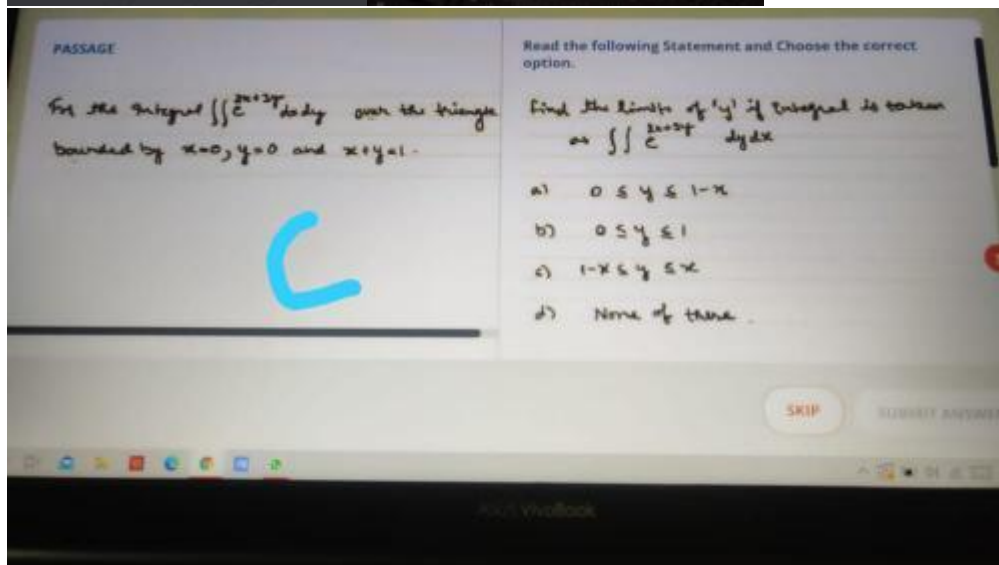 PASSAGE
For the Integral ∫∫e^2x+3y dxdy over the triangle
bounded by x=0, y=0 and x+y=1.
C
Read the following Statement and Choose the correct
option.
find the limits of 'y' if Integral is taken
as ∫∫ e^2x+3y dydx
a) 0 ≤ y ≤ 1-x
b) 0 ≤ y ≤ 1
c) 1-x ≤ y ≤ x
d) None of these.
SKIP
SUBMIT ANSWE
VivoBook